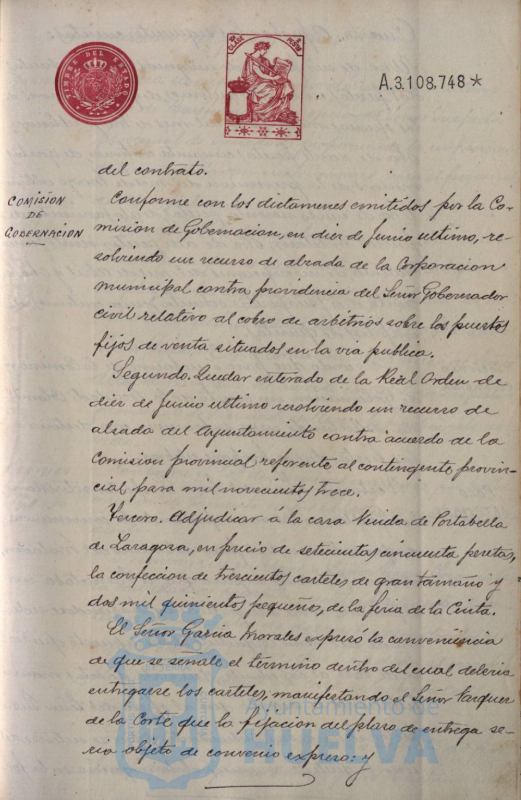 TIMBRE DEL ESTADO
A.3.108,748*
del contrato.
COMISION
DE
GOBERNACION
Conforme con los dictamenes emitidos por la Co-
mision de Gobernacion, en diez de Junio ultimo, re-
solviendo un recurso de alzada de la Corporacion
municipal contra providencia del Señor Gobernador
civil relativo al cobro de arbitrios sobre los puestos
fijos de venta situados en la via publica.
Segundo. Quedar enterado de la Real Orden de
diez de Junio ultimo resolviendo un recurso de
alzada del Ayuntamiento contra acuerdo de la
Comision provincial referente al contingente provin-
cial para mil novecientos trece.
Tercero. Adjudicar á la casa Viuda de Portabella
de Zaragoza, en precio de setecientas cincuenta pesetas,
la confeccion de trescientos carteles de gran tamaño y
dos mil quinientos pequeños, de la feria de la Cinta.
El Señor Garcia Morales expresó la conveniencia
de que se señale el término dentro del cual deberia
entregarse los carteles, manifestando el Señor Vazquez
de la Corte que la fijacion del plazo de entrega se-
ria objeto de convenio expreso: y
Ayuntamiento de
HUELVA